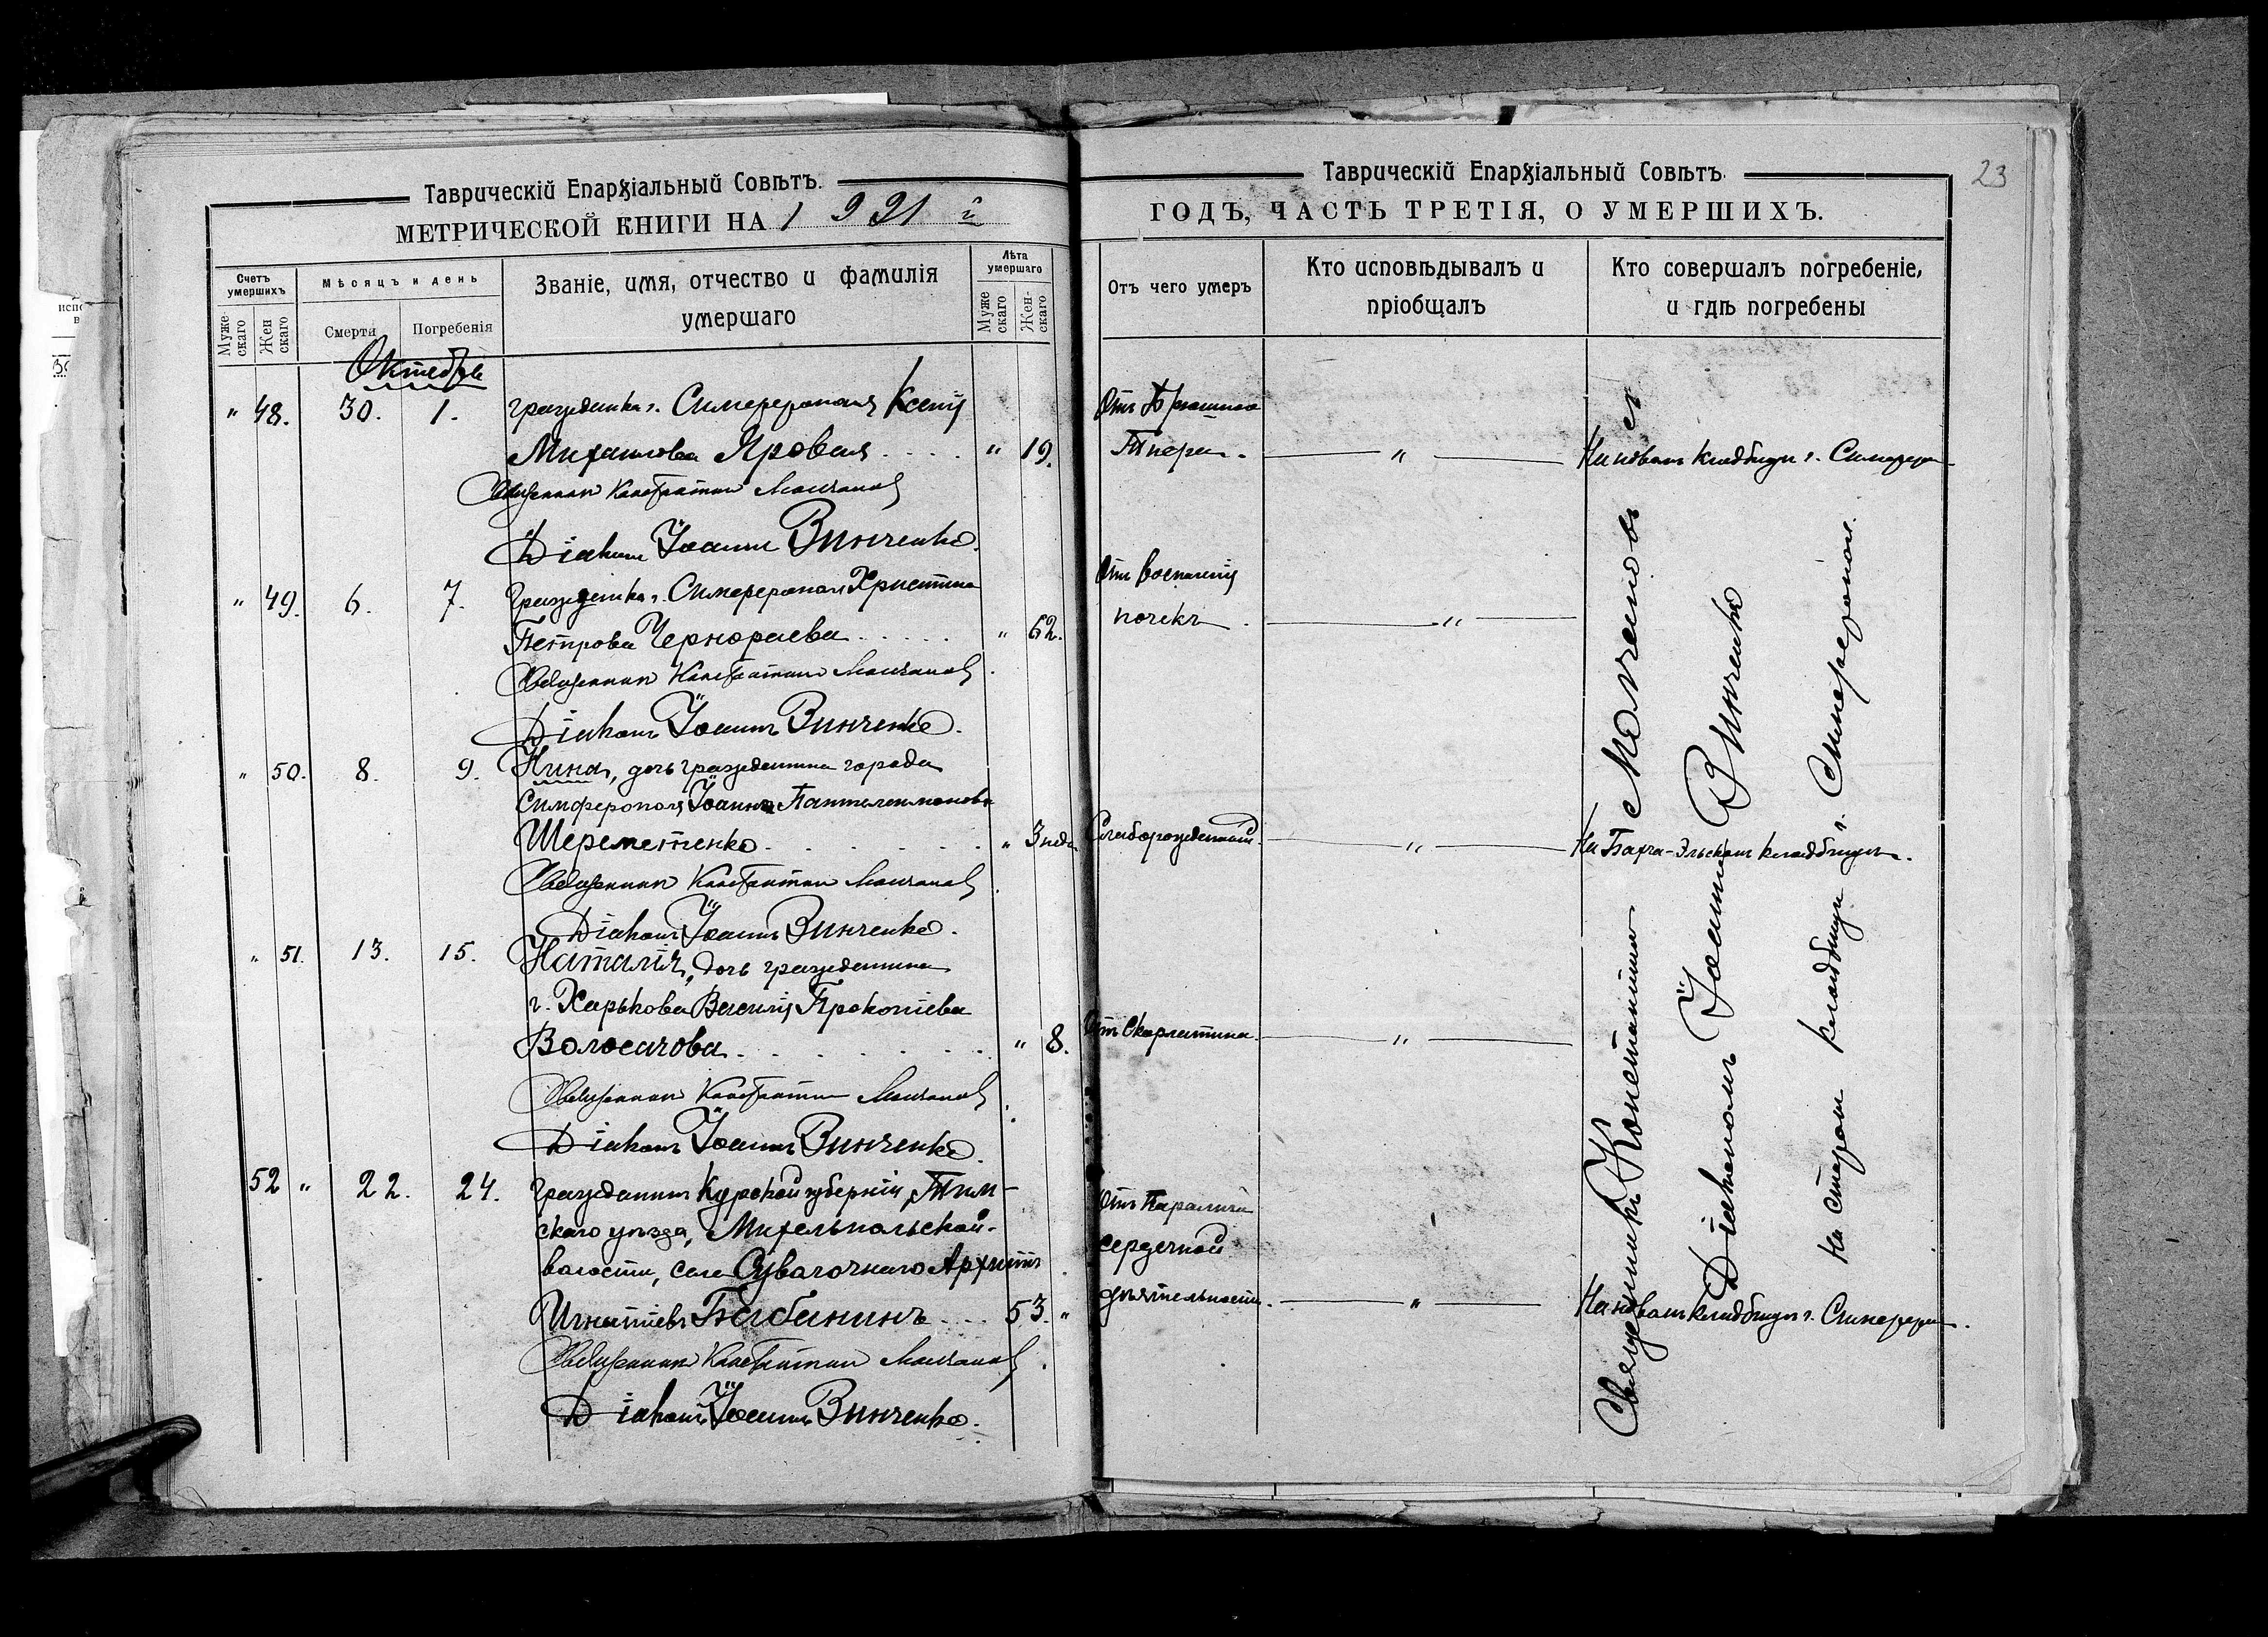 Таврическій Епархіальный Совѣтъ.
МЕТРИЧЕСКОЙ КНИГИ НА 1921й
Счетъ умершихъ
Мужескаго
Женскаго
Мѣсяцъ и день
Смерти
Погребенія
Званіе, имя, отчество и фамилія
умершаго
Лѣта умершаго
Мужескаго
Женскаго
Октябрь
" 48. 30. 1. гражданка г. Симферополя Ксенія
Михаилова Яровая . . . . " 19.
Священникъ Константинъ Молчановъ
Діаконъ Іоаннъ Винченко.
" 49. 6. 7. Гражданка г. Симферополя Христина
Петрова Чернораева . . . . . " 62.
Священникъ Константинъ Молчановъ
Діаконъ Іоаннъ Винченко.
" 50. 8. 9. Нина, дочь гражданина города
Симферополя Іоанна Пантелеимонова
Шереметенко . . . . . . " 3 нед.
Священникъ Константинъ Молчановъ
Діаконъ Іоаннъ Винченко.
" 51. 13. 15. Наталія, дочь гражданина
г. Харькова Василія Прокопіева
Волосачова . . . . . . . " 8.
Священникъ Константинъ Молчановъ
Діаконъ Іоаннъ Винченко.
52 " 22. 24. Гражданинъ Курской губерніи, Тим-
скаго уѣзда, Михельпольской
волости, села Архиппъ
Игнатіевъ Бабанинъ . . . 53. "
Священникъ Константинъ Молчановъ
Діаконъ Іоаннъ Винченко.
Таврическій Епархіальный Совѣтъ.
23
ГОДЪ, ЧАСТЬ ТРЕТІЯ, О УМЕРШИХЪ.
Отъ чего умеръ
Кто исповѣдывалъ и
пріобщалъ
Кто совершалъ погребеніе,
и гдѣ погребены
Отъ Брюшного
Тифа. " На новомъ кладбищѣ г. Симфероп.
Отъ воспаленія
почекъ. "
Слаборожденной. " На Бахчи-Эльскомъ кладбищѣ.
Отъ Скарлатина. "
Отъ Паралича
сердечной
дѣятельности. " На новомъ кладбищѣ г. Симфероп.
Священникъ Константинъ Молчановъ съ
Діакономъ Іоанномъ Винченко
На старомъ кладбищѣ г. Симферополя.